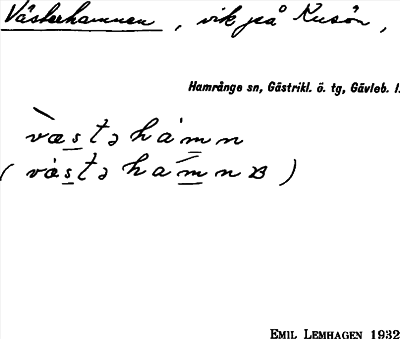 Västerhamnen, vik på Kusön,
Hamrånge sn, Gästrikl. ö. tg, Gävleb. l.
västəhàmn
(västəhamnɞ)
EMIL LEMHAGEN 1932